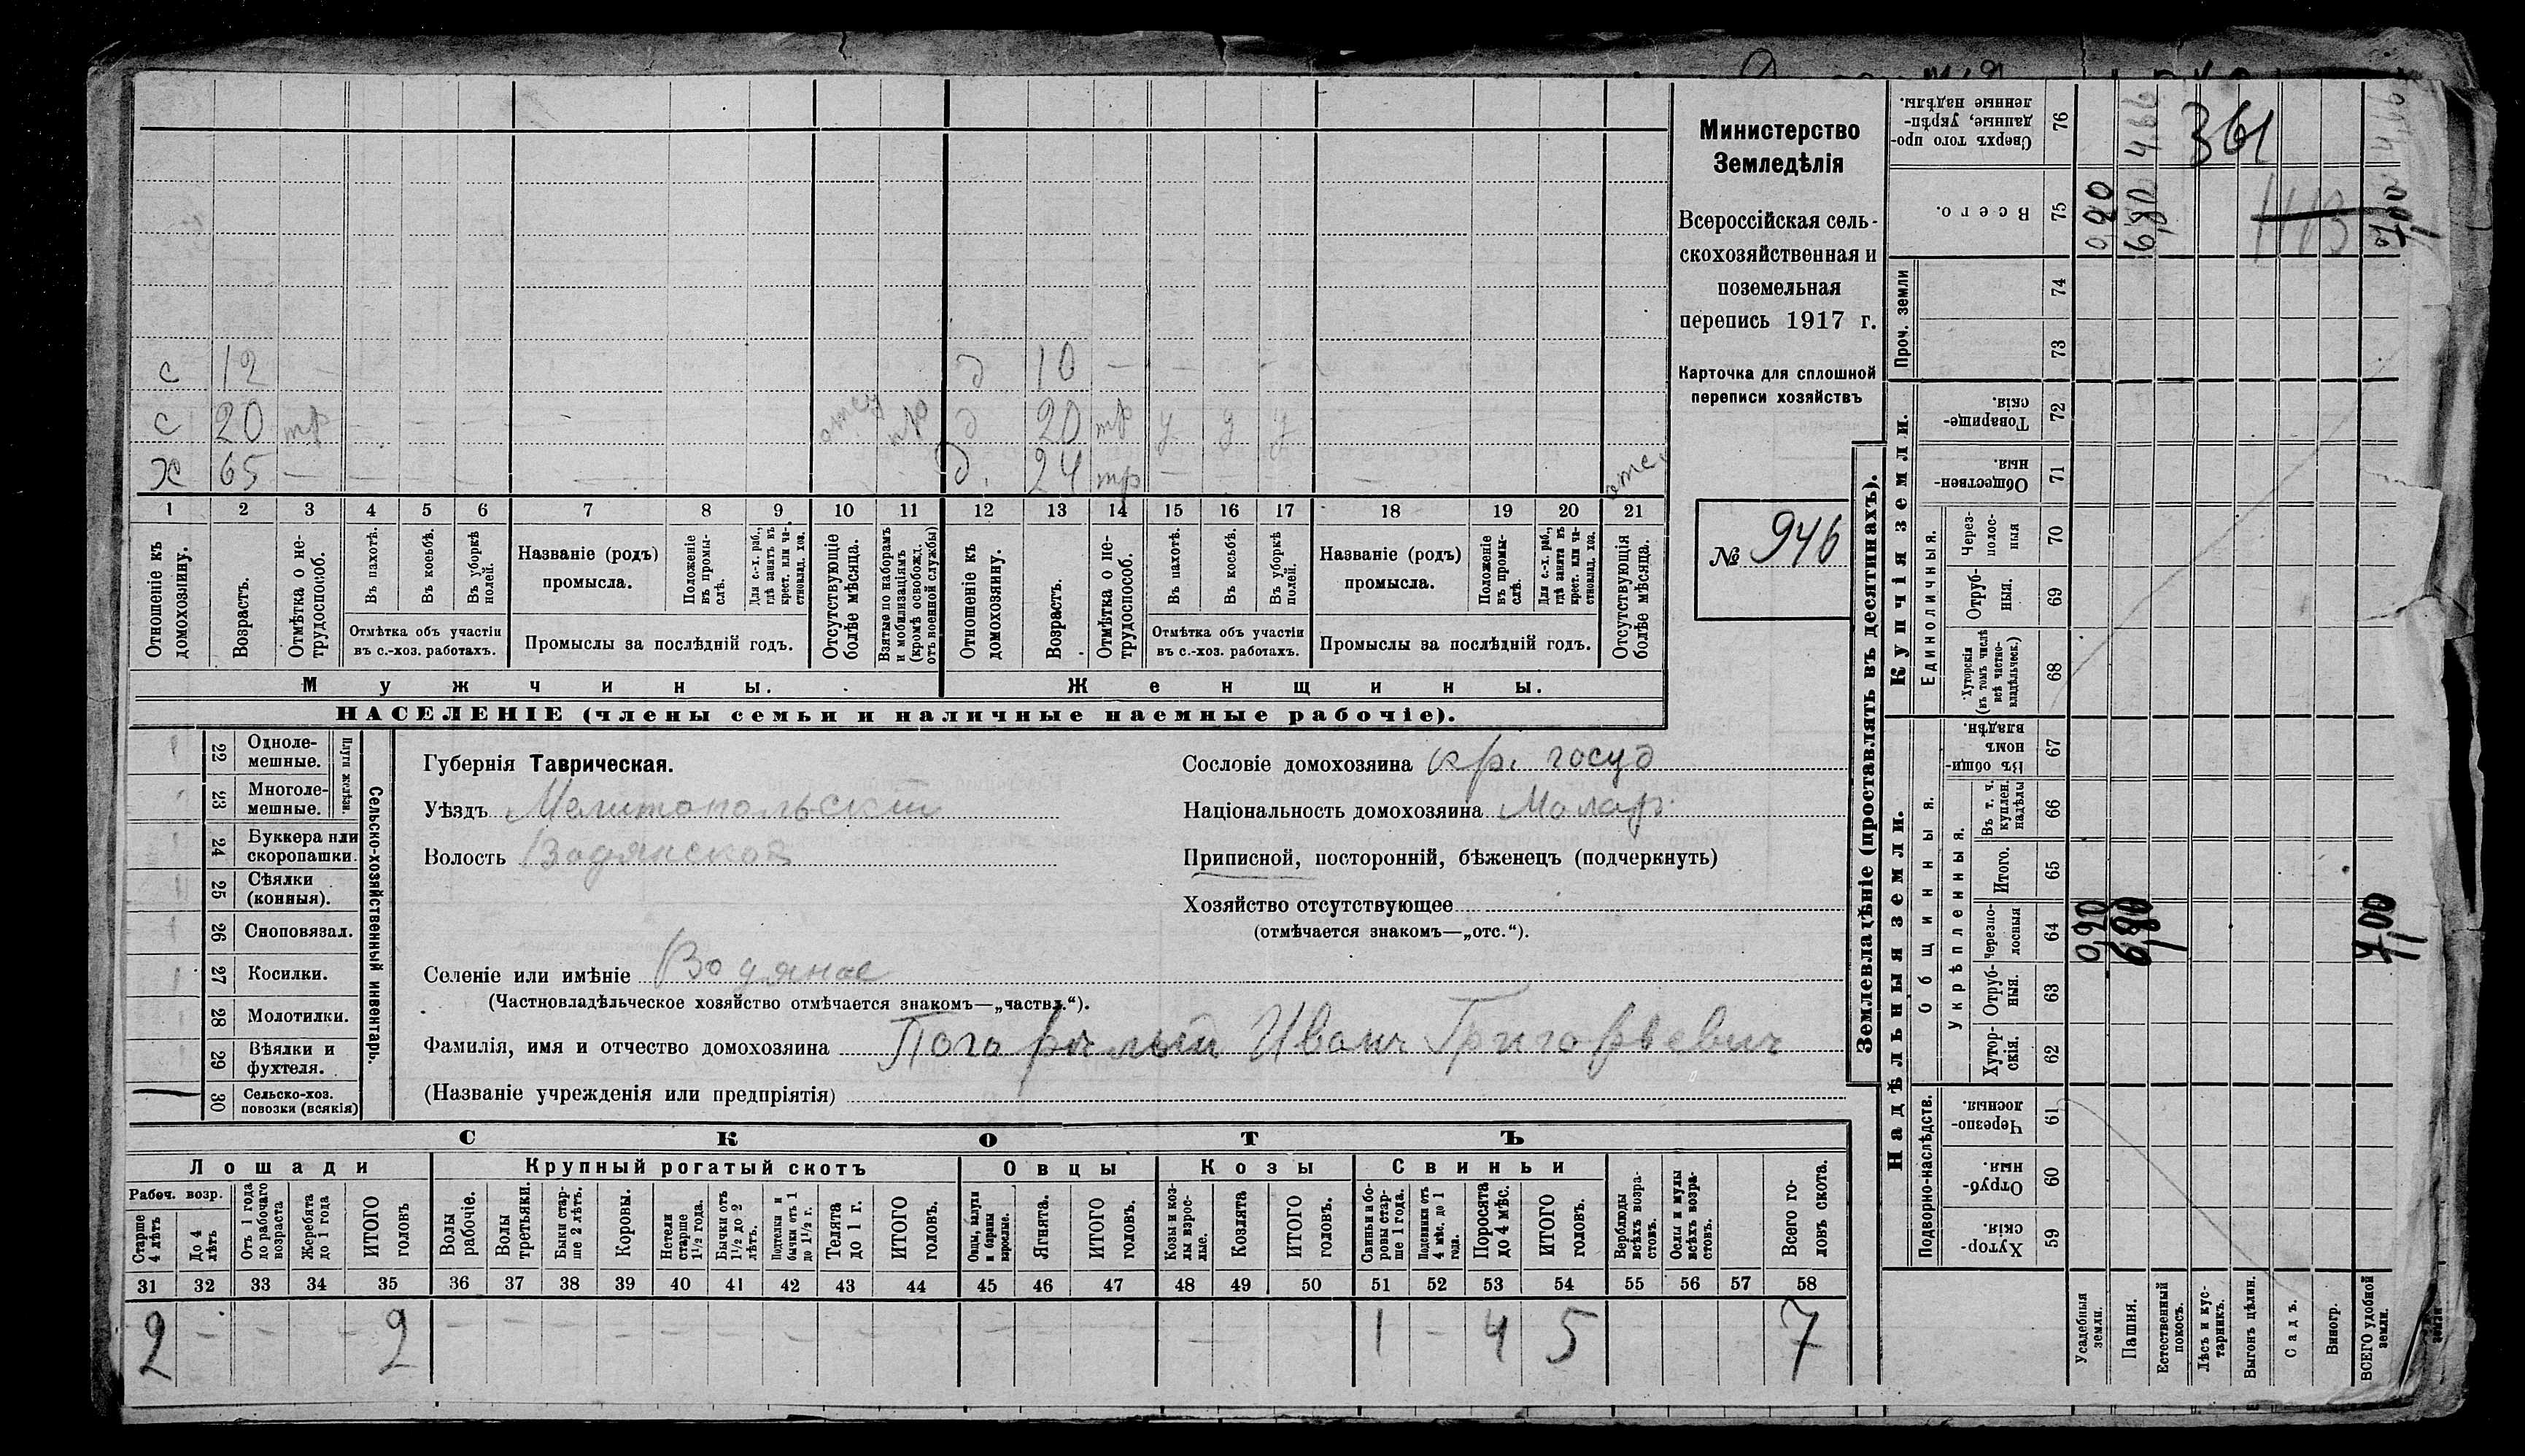 Министерство
Земледѣлія
Всероссійская сель-
скохозяйственная и
поземельная
перепись 1917 г.
Карточка для сплошной
переписи хозяйствъ
№ 946
с 12 — д 10 — — — —
с 20 тр — — — — д 20 тр у у у — — —
х 65 — — — — — д. 24 тр — — — отс.
1 2 3 4 5 6 7 8 9 10 11 12 13 14 15 16 17 18 19 20 21
Отношеніе къ домохозяину.
Возрастъ.
Отмѣтка о не-
трудоспособ.
Въ пахотѣ.
Въ косьбѣ.
Въ уборкѣ полей.
Отмѣтка объ участіи
въ с.-хоз. работахъ.
Названіе (родъ)
промысла.
Положеніе въ промы-
слѣ.
Для с.-х. раб., гдѣ занятъ въ крест. или ча-
стновлад. хоз.
Промыслы за послѣдній годъ.
Отсутствующіе болѣе мѣсяца.
Взятые по наборамъ и мобилизаціямъ (кромѣ освобожд. отъ военной службы)
Отношеніе къ домохозяину.
Возрастъ.
Отмѣтка о не-
трудоспособ.
Въ пахотѣ.
Въ косьбѣ.
Въ уборкѣ полей.
Отмѣтка объ участіи
въ с.-хоз. работахъ.
Названіе (родъ)
промысла.
Положеніе въ промы-
слѣ.
Для с.-х. раб., гдѣ занята въ крест. или ча-
стновлад. хоз.
Промыслы за послѣдній годъ.
Отсутствующія болѣе мѣсяца.
Мужчины.
Женщины.
НАСЕЛЕНІЕ (члены семьи и наличные наемные рабочіе).
Сельско-хозяйственный инвентарь.
Плуги желѣзн.
22 Одноле-
мешные.
23 Многоле-
мешные.
24 Буккера или
скоропашки.
25 Сѣялки
(конныя).
26 Сноповязал.
27 Косилки.
28 Молотилки.
29 Вѣялки и
фухтеля.
30 Сельско-хоз.
повозки (всякія)
Губернія Таврическая.
Уѣздъ Мелитопольскій
Волость Водянской
Селеніе или имѣніе Водяное
(Частновладѣльческое хозяйство отмѣчается знакомъ—„частвл.“).
Фамилія, имя и отчество домохозяина Погорѣлый Иванъ Григорьевич
(Названіе учрежденія или предпріятія)
Сословіе домохозяина кр. госуд
Національность домохозяина Малор.
Приписной, посторонній, бѣженецъ (подчеркнуть)
Хозяйство отсутствующее
(отмѣчается знакомъ—„отс.“).
СКОТЪ
Лошади
Крупный рогатый скотъ
Овцы
Козы
Свиньи
Рабоч. возр.
Старше 4 лѣтъ
До 4 лѣтъ
Отъ 1 года до рабочаго возраста
Жеребята до 1 года
ИТОГО головъ
Волы рабочіе.
Волы третьяки.
Быки стар-
ше 2 лѣтъ.
Коровы.
Нетели старше 1½ года.
Бычки отъ 1½ до 2 лѣтъ.
Подтелки и бычки отъ 1 до 1½ г.
Телята до 1 г.
ИТОГО головъ.
Овцы, валухи и бараны взрослые.
Ягнята.
ИТОГО головъ.
Козы и коз-
лы взрос-
лые.
Козлята
ИТОГО головъ.
Свиньи и бо-
ровы стар-
ше 1 года.
Подсвинки отъ 4 мѣс. до 1 года.
Поросята до 4 мѣс.
ИТОГО головъ.
Верблюды всѣхъ возра-
стовъ.
Ослы и мулы всѣхъ возра-
стовъ.
Всего го-
ловъ скота.
31 32 33 34 35 36 37 38 39 40 41 42 43 44 45 46 47 48 49 50 51 52 53 54 55 56 57 58
2 — — — 2 — — — — — — — — — — — — — — — 1 — 4 5 7
Землевладѣніе (проставлять въ десятинахъ).
Купчія земли.
Надѣльныя земли.
Проч. земли
Единоличныя.
Общинныя.
Укрѣпленныя.
Подворно-наслѣдств.
Сверхъ того про-
данные, укрѣп-
ленные надѣлы. 76
Всего. 75
74
73
Товарище-
скія. 72
Обществен-
ныя. 71
Через-
полос-
ныя 70
Отруб-
ныя. 69
Хуторскія (въ томъ числѣ всѣ частно-
владѣльческ.) 68
Въ общин-
номъ
владѣн. 67
Въ т. ч. куплен. надѣлы 66
Итого. 65
Черезпо-
лосныя 64
Отруб-
ныя. 63
Хутор-
скія. 62
Черезпо-
лосныя. 61
Отруб-
ныя. 60
Хутор-
скія. 59
Усадебныя земли.
Пашня.
Естественный покосъ.
Лѣсъ и кус-
тарникъ.
Выгонъ цѣлин.
Садъ.
Виногр.
ВСЕГО удобной земли.
0,20 6,80 7,00
0,20 6,80 7,00
4,66
361
1113